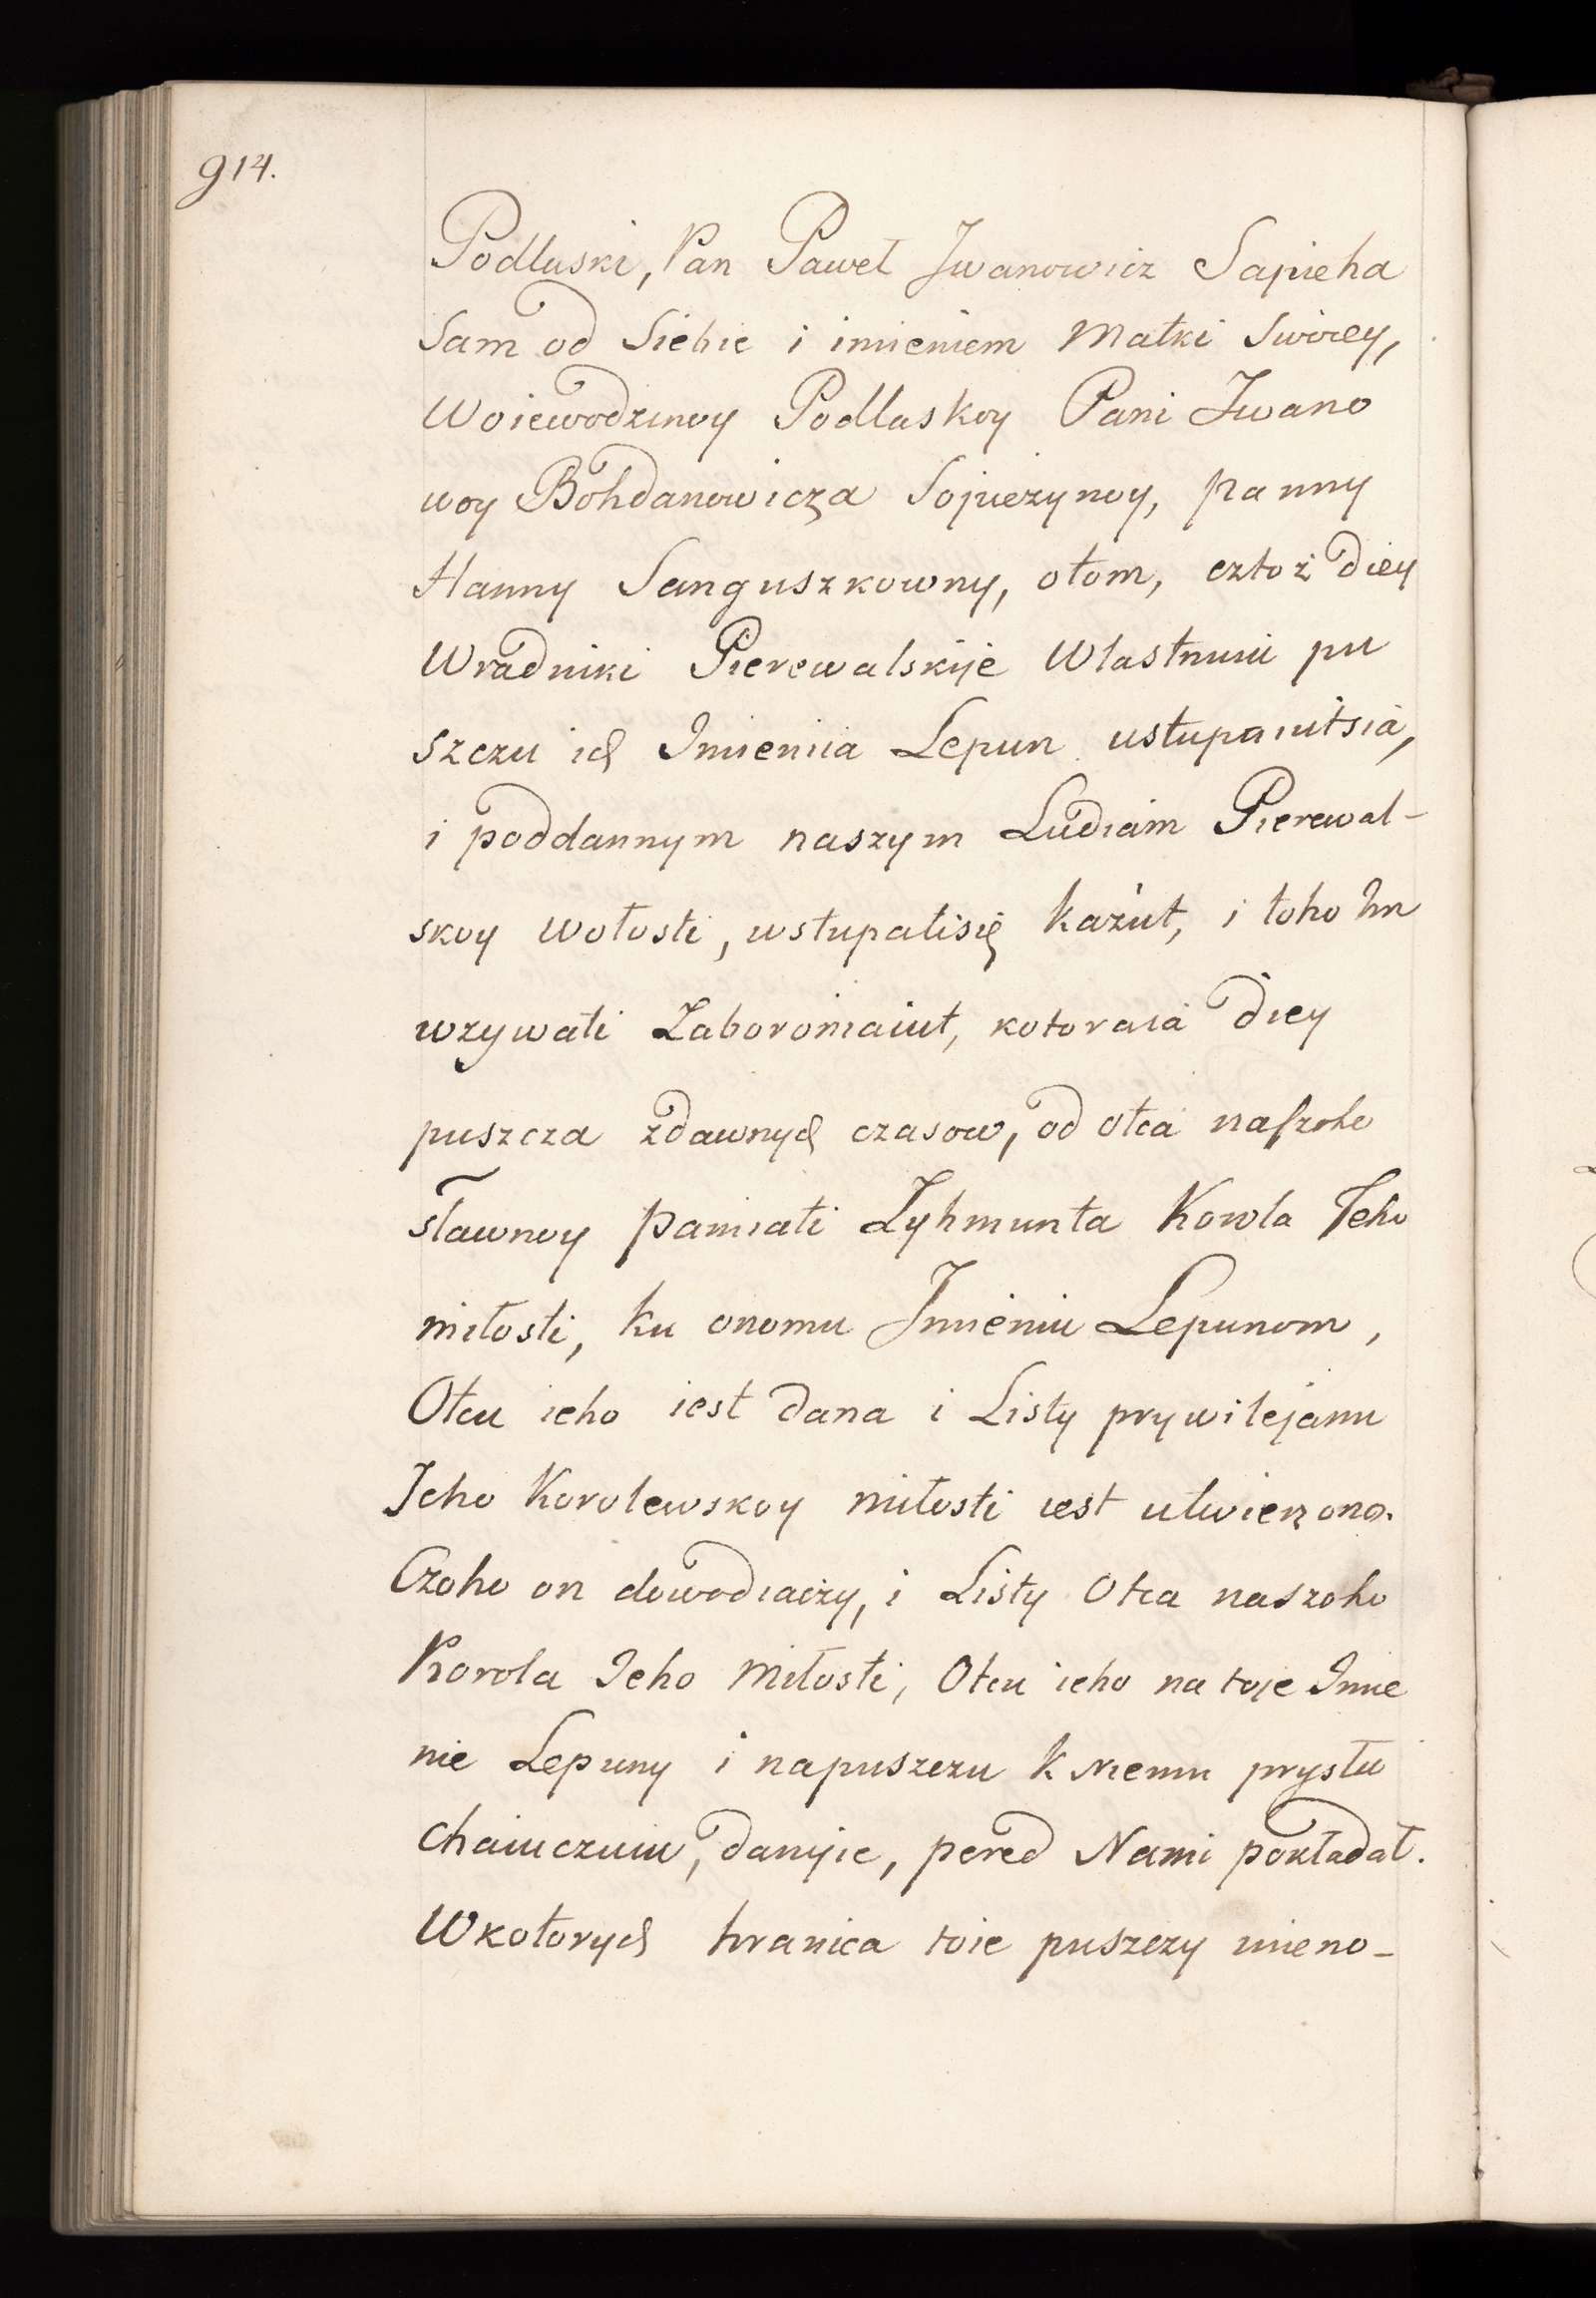 914.
Podlaski, Pan Paweł Jwanowicz Sapieha
Sam od Siebie i imieniem Matki Swoiey,
Woiewodzinoy Podlaskoy Pani Jwano
woy Bohdanowicza Sopieżynoy, panny
Hanny Sanguszkowny, otom, cztoż diey
Wradniki Pierewalskije Wlastnuiu pu
szczu ich Imieniia Lepun ustupaiutsia,
i poddannym naszym Ludiam Pierewal-
skoy wołosti, wstupatisię każut, i toho Im
wzywati Zaboroniaiut, kotoraia diey
puszcza zdawnych czasow, od otca naszoho
sławnoy pamiati Zyhmunta Korola Jeho
miłosti, ku onomu Jmieniu Lepunom,
Otcu ieho iest dana i Listy prywilejamu
Jeho Korolewskoy miłosti iest utwierzono.
Czoho on dowodiaczy, i Listy Otca naszoho
Korola Jeho Miłosti, Otcu ieho na toje Imie
nie Lepuny i napuszczu k niemu prysłu
chaiuczuiu, danyie, pered Nami pokładał.
Wkotorych hranica toie puszczy imieno-